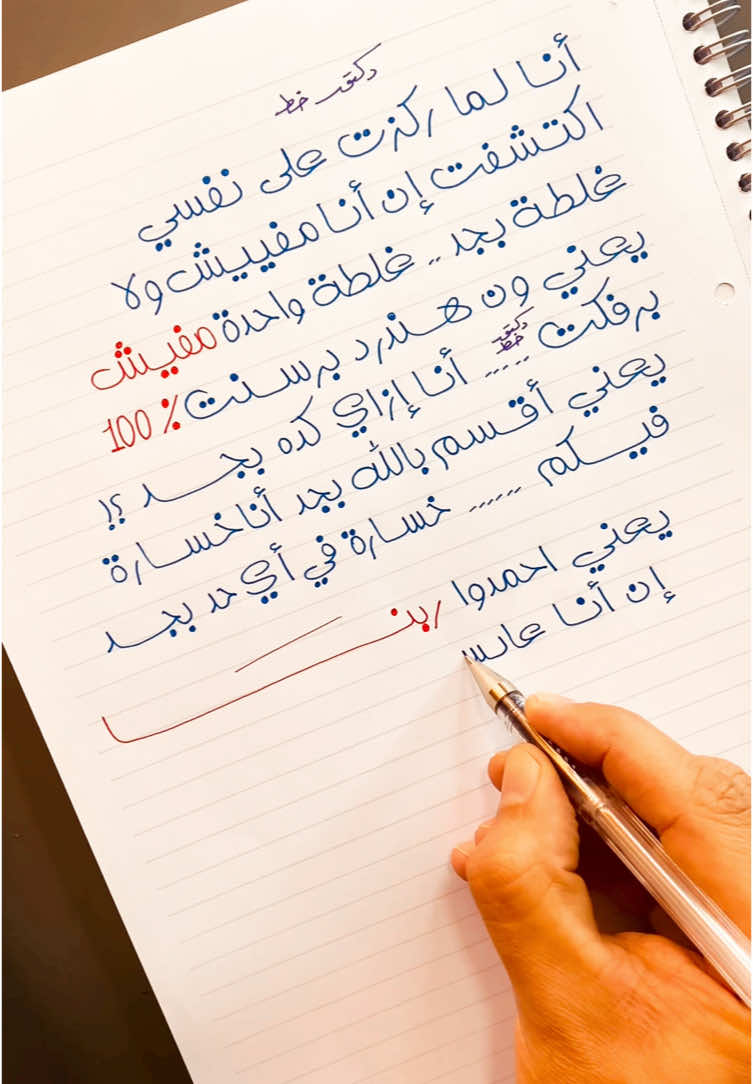 دكتور خط
أنا لما ركزت على نفسي
اكتشفت إن أنا مفييش ولا
غلطة بجد .. غلطة واحدة مفيش
يعني ون هندرد برسنت 100%
برفكت ...... أنا إزاي كده بجــــد ؟!
دكتور خط
يعني أقسم بالله بجد أنا خسارة
فيــكم ...... خسارة في أي حد بجــد
يعني احمدوا ربنــــــا
إن أنا